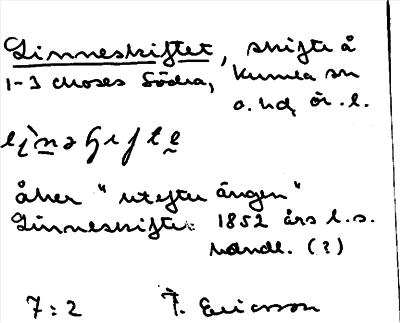 Linneskiftet, skifte å
1-3 Moses Södra, Kumla sn
o. hd, ör. l.
åker "utefter ängen"
Linneskifte: 1852 års l.s.
handl. (?)
7:2 J. Ericsson